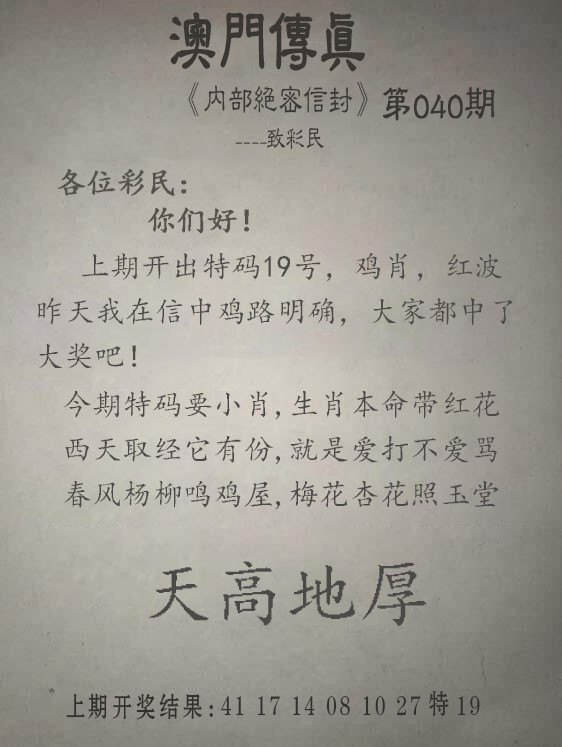 澳門傳眞
《内部絕密信封》第040期
----致彩民
各位彩民：
你们好！
上期开出特码19号，鸡肖，红波
昨天我在信中鸡路明确，大家都中了
大奖吧！
今期特码要小肖,生肖本命带红花
西天取经它有份,就是爱打不爱骂
春风杨柳鸣鸡屋,梅花杏花照玉堂
天高地厚
上期开奖结果:41 17 14 08 10 27特19